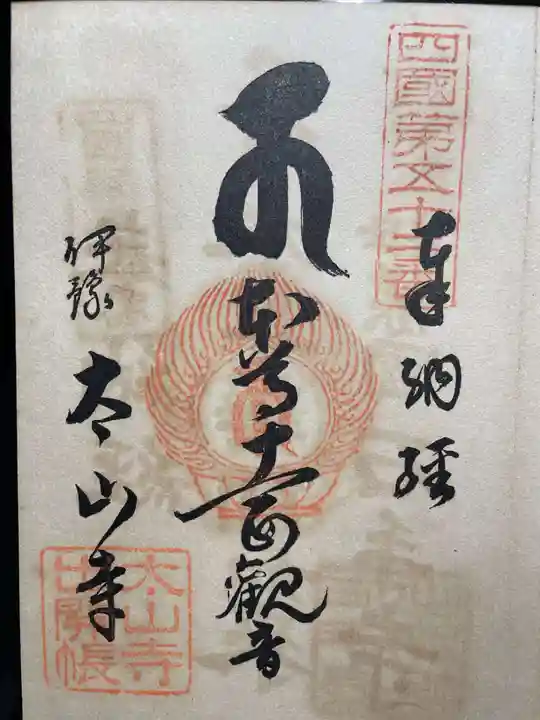 四國第五十二番
奉納経
本尊十一面観音
伊豫
太山寺
太山寺